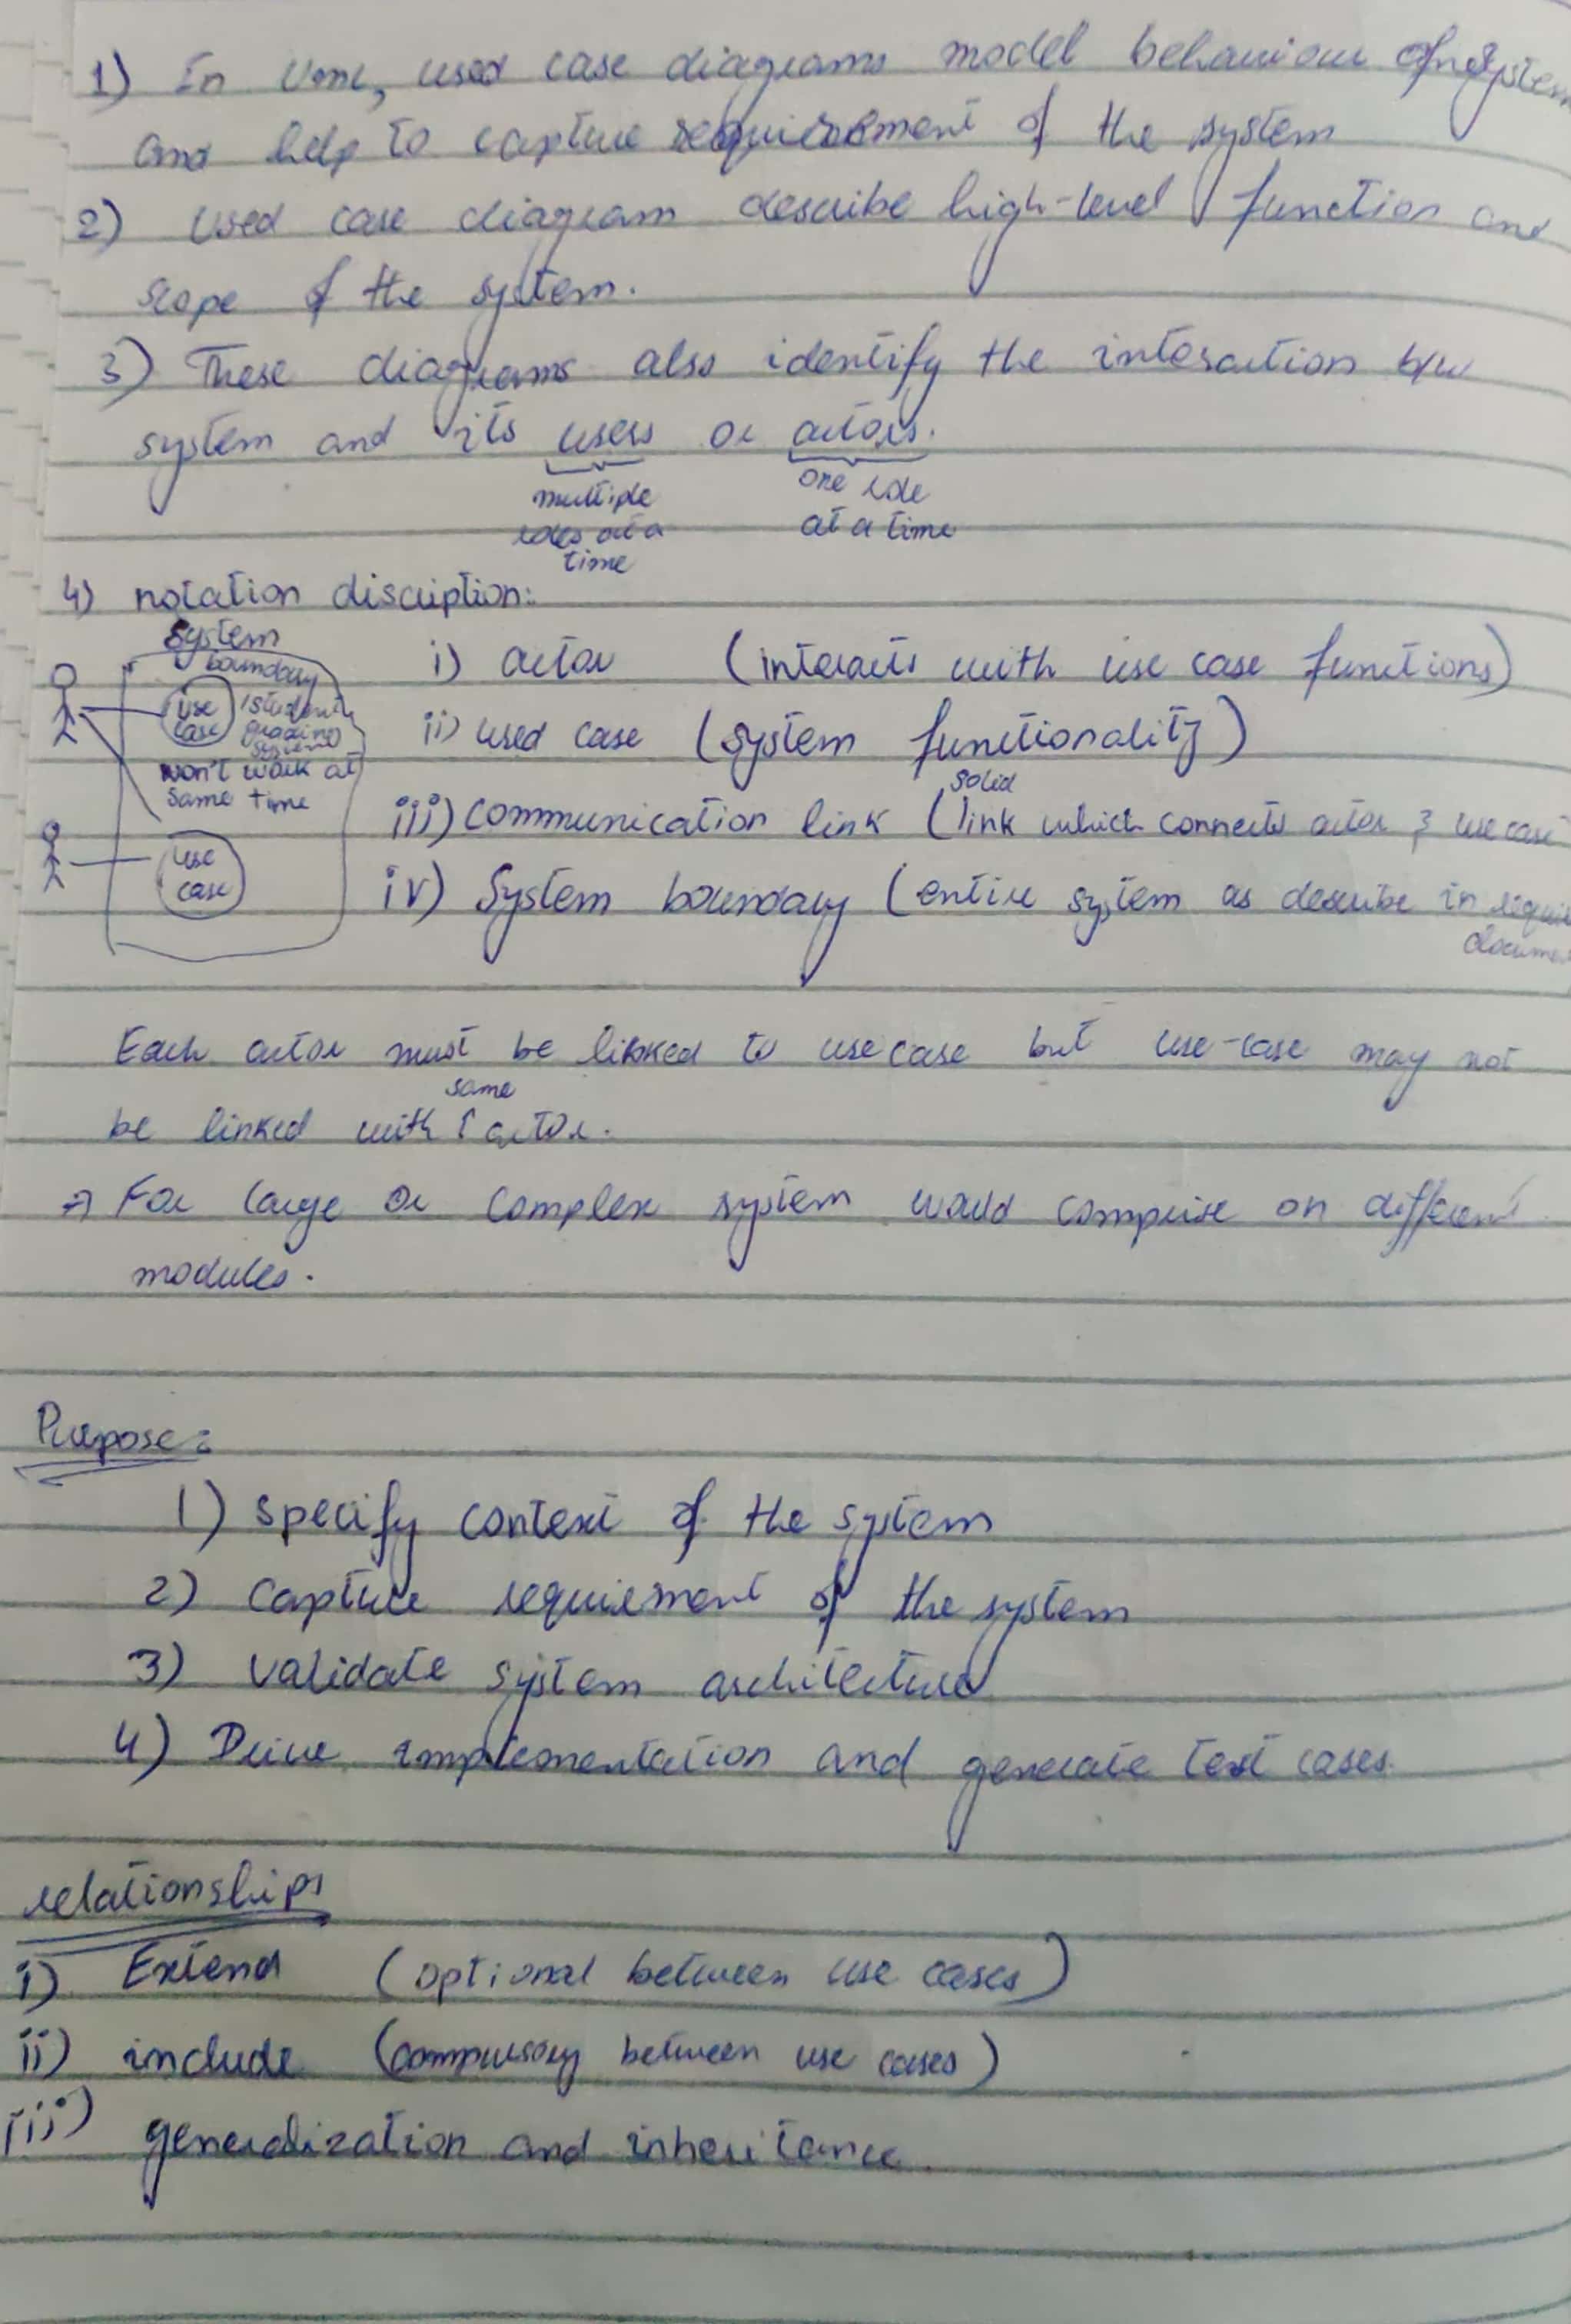 1) In UML, used case diagrams model behaviour of system
and help to capture requirement of the system
2) Used case diagram describe high-level function and
scope of the system.
3) These diagrams also identify the interaction b/w
system and its users or actors.
multiple roles at a time
one role at a time
4) notation discription:
System boundary
use case
/student grading system
won't work at same time
use case
i) actor (interacts with use case functions)
ii) used case (system functionality)
iii) communication link (solid link which connects actor & use case
iv) System boundary (entire system as describe in
Each actor must be linked to use case but use-case may not
be linked with same actor.
⇒ For large or complex system would comprise on different
modules.
Purpose:
1) specify context of the system
2) capture requirement of the system
3) validate system architecture
4) Drive implementation and generate test cases.
relationships
i) Extend (optional between use cases)
ii) include (compulsory between use cases)
iii) generalization and inheritance.